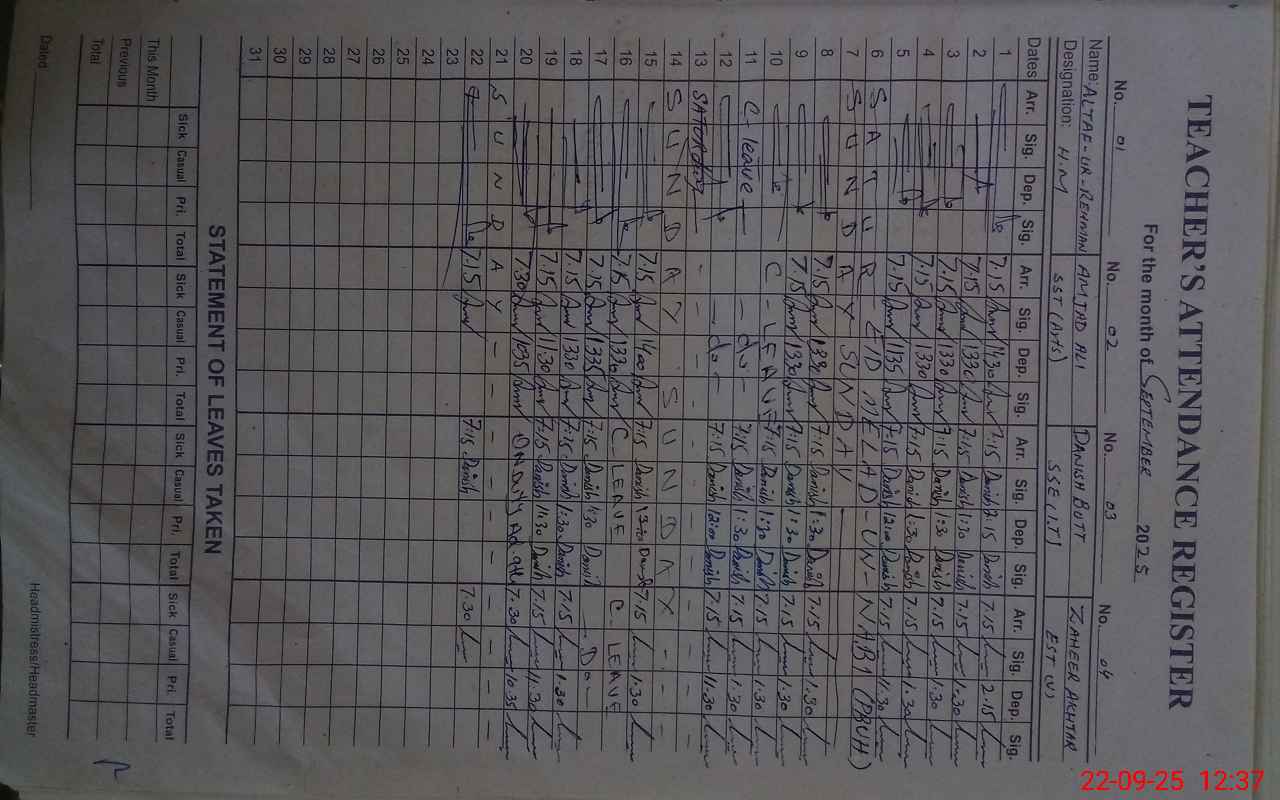 TEACHER'S ATTENDANCE REGISTER
For the month of September 2025
No. 01 No. 02 No. 03 No. 04
Name: ALTAF-UR-REHMAN AMJAD ALI DANISH BUTT ZAHEER AKHTAR
Designation: H.M SST (Arts) SSE (I.T) EST (V)
Dates Arr. Sig. Dep. Sig. Arr. Sig. Dep. Sig. Arr. Sig. Dep. Sig. Arr. Sig. Dep. Sig.
1 7.15 1430 7:15 Danish 2:15 Danish 7.15 2.15
2 7.15 1330 7:15 Danish 1:30 Danish 7.15 1.30
3 7.15 1330 7:15 Danish 1:30 Danish 7.15 1.30
4 7.15 1330 7:15 Danish 1:30 Danish 7.15 1.30
5 7.15 1135 7:15 Danish 12:00 Danish 7.15 11.30
6 S A T U R EID MELAD-UN-NABI (PBUH)
7 S U N D A Y SUNDAY
8 7.15 1330 7:15 Danish 1:30 Danish 7.15 1.30
9 7.15 1330 7:15 Danish 1:30 Danish 7.15 1.30
10 C-LEAVE 7:15 Danish 1:30 Danish 7.15 1.30
11 C-leave - do - 7:15 Danish 1:30 Danish 7.15 1.30
12 - do - 7:15 Danish 12:00 Danish 7.15 11.30
13 SATURDAY - -
14 S U N D A Y S U N D A Y - - -
15 7.15 1400 7:15 Danish Danish 7.15 1.30
16 7.15 1330 C-LEAVE C-LEAVE
17 7.15 1335 7:15 Danish 1:30 Danish - Do -
18 7.15 1330 7:15 Danish 1:30 Danish 7.15 1.30
19 7.15 1130 7:15 Danish 11:30 Danish 7.15 11.30
20 7.30 1035 7.30 10.35
21 S U N D A Y - - - - - -
22 7.15 7:15 Danish 7.30
23
24
25
26
27
28
29
30
31
STATEMENT OF LEAVES TAKEN
Sick Casual Pri. Total Sick Casual Pri. Total Sick Casual Pri. Total Sick Casual Pri. Total
This Month
Previous
Total
Dated Headmistress/Headmaster
22-09-25 12:37